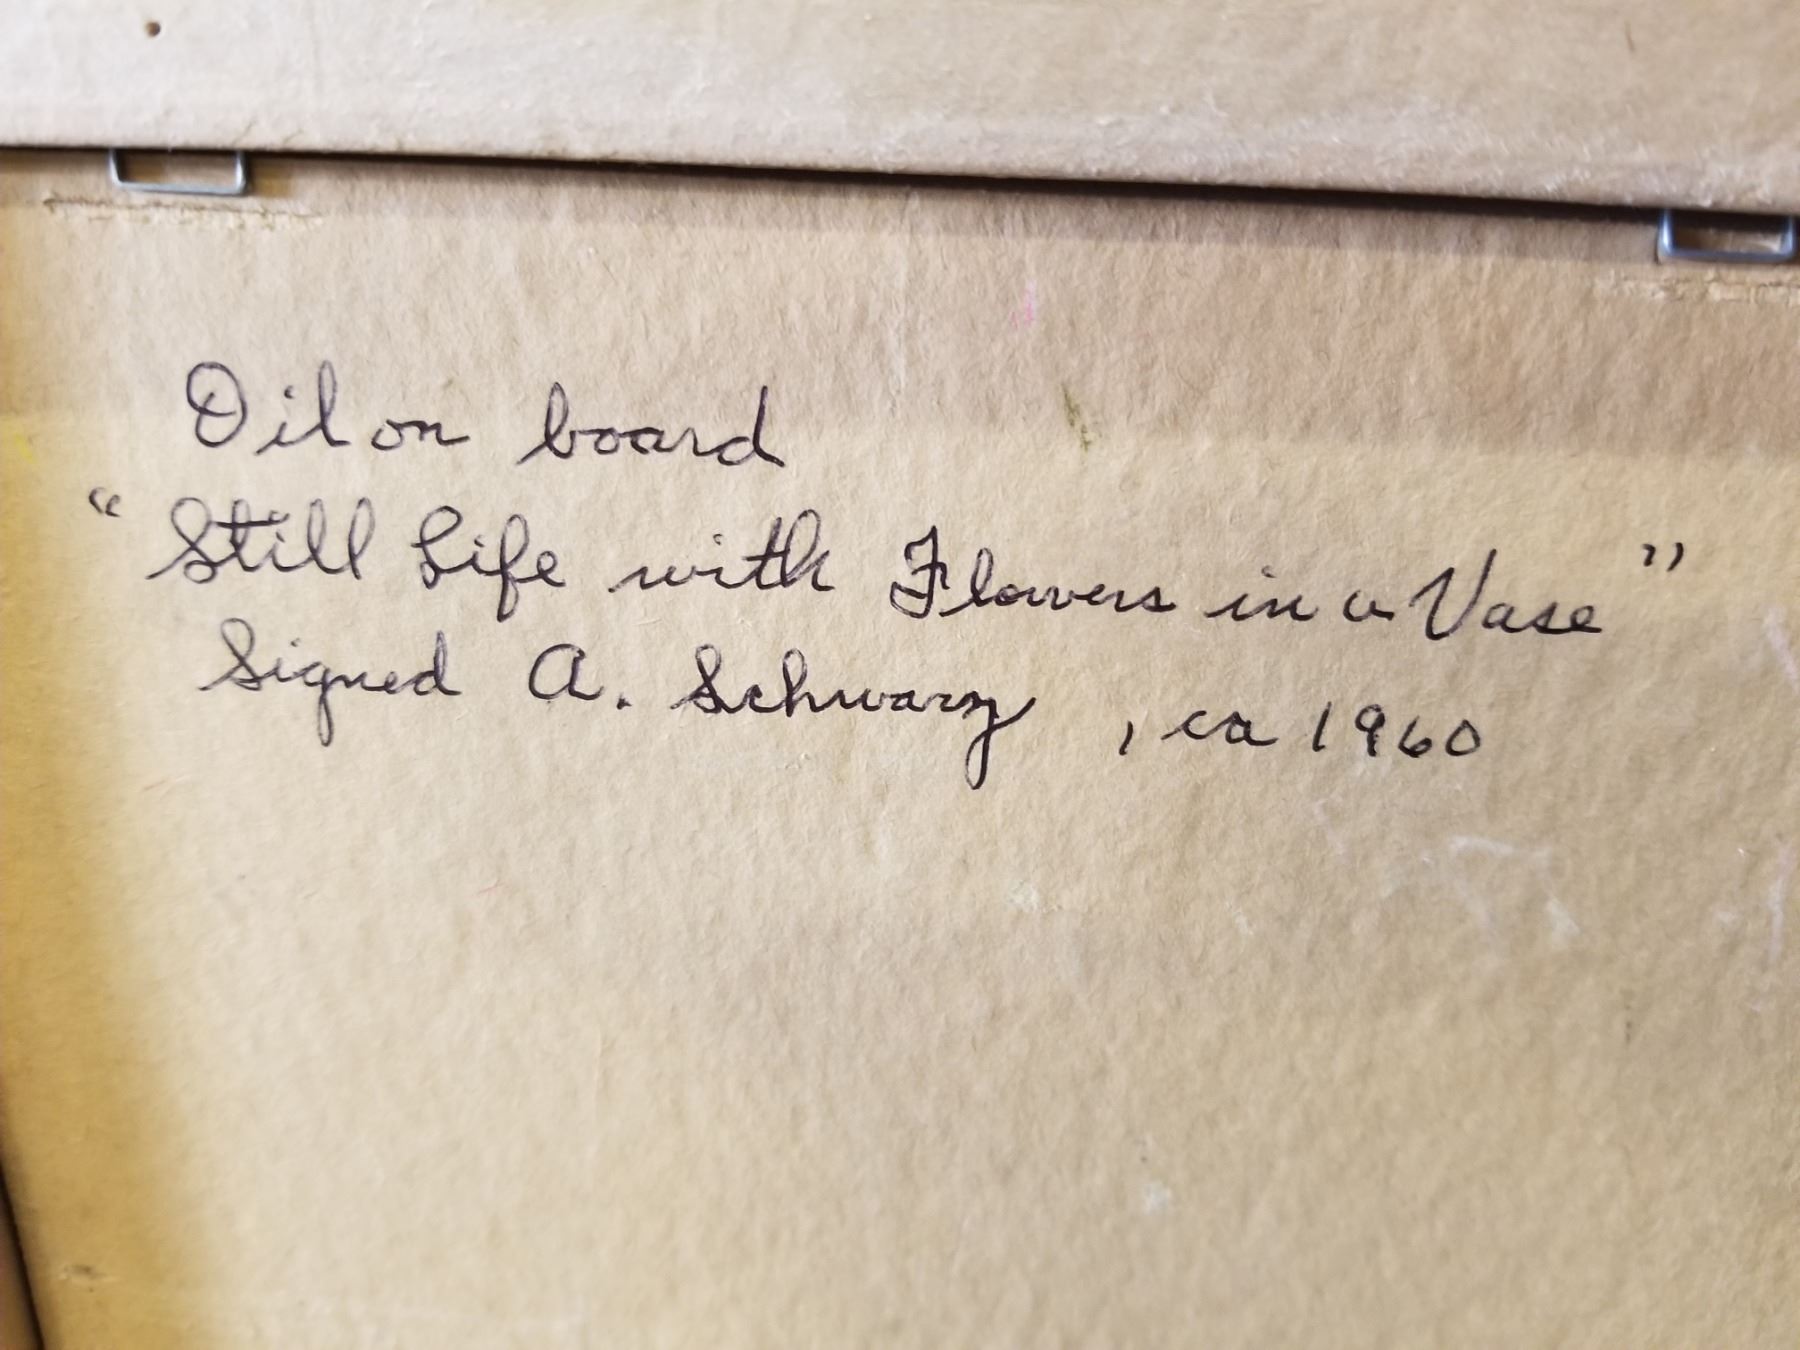 Oil on board
"Still Life with Flowers in a Vase"
Signed A. Schwarz, ca 1960